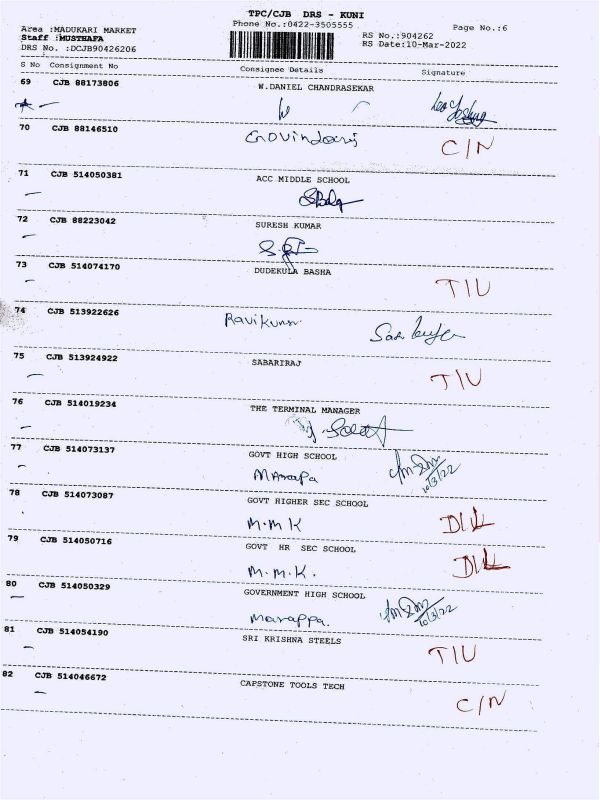 TPC/CJB DRS - KUNI
Phone No.:0422-3505555
Page No.:6
Area :MADUKARI MARKET
Staff :MUSTHAFA
DRS No. :DCJB90426206
RS No.:904262
RS Date:10-Mar-2022
S No Consignment No Consignee Details Signature
69 CJB 88173806 W.DANIEL CHANDRASEKAR
70 CJB 88146510 Govindaraj C/N
71 CJB 514050381 ACC MIDDLE SCHOOL
72 CJB 88223042 SURESH KUMAR
73 CJB 514074170 DUDEKULA BASHA
T/U
74 CJB 513922626 Ravikumar
75 CJB 513924922 SABARIRAJ
T/U
76 CJB 514019234 THE TERMINAL MANAGER
77 CJB 514073137 GOVT HIGH SCHOOL
Marapa 10/3/22
78 CJB 514073087 GOVT HIGHER SEC SCHOOL
M.M.K D/L
79 CJB 514050716 GOVT HR SEC SCHOOL
M.M.K. D/L
80 CJB 514050329 GOVERNMENT HIGH SCHOOL
Marappa. 10/3/22
81 CJB 514054190 SRI KRISHNA STEELS
T/U
82 CJB 514046672 CAPSTONE TOOLS TECH
C/N